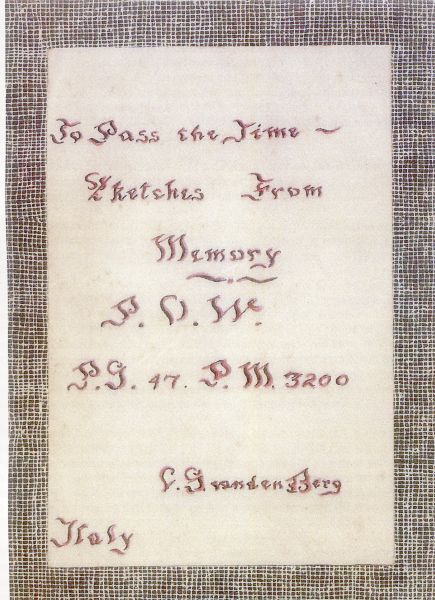 To Pass the Time ~
Sketches From
Memory
P. O. W.
P. G. 47. P. M. 3200
C. G. vanden Berg
Italy